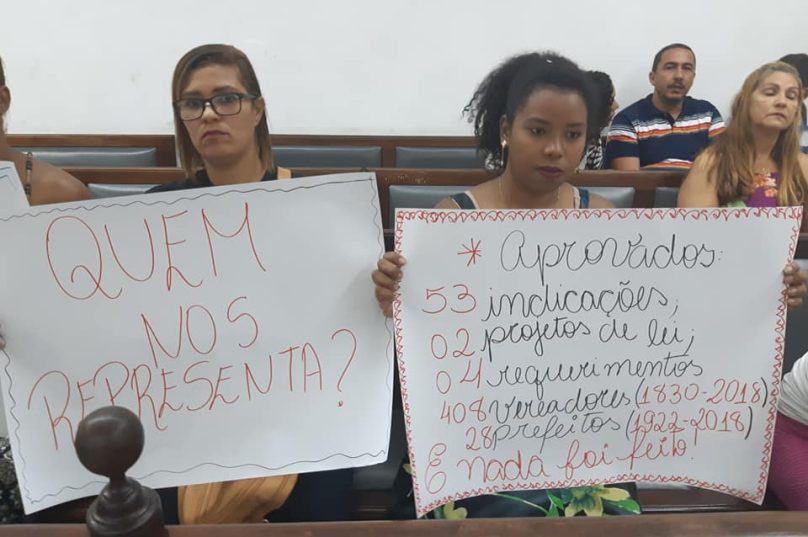 QUEM
NOS
REPRESENTA?
* Aprovados:
53 indicações;
02 projetos de lei;
04 requerimentos
408 vereadores (1830-2018)
28 prefeitos (1922-2018)
E nada foi feito.